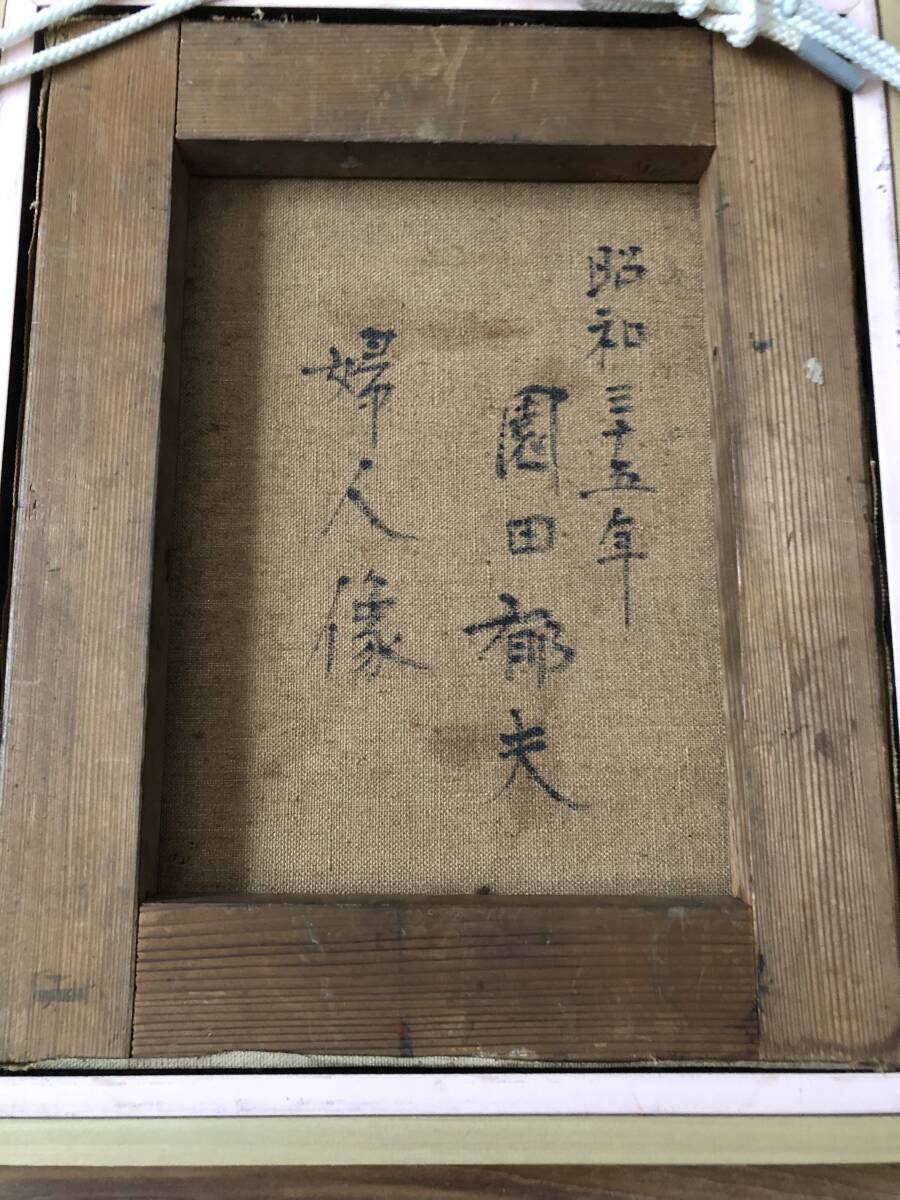 昭和三十五年
園田郁夫
婦人像